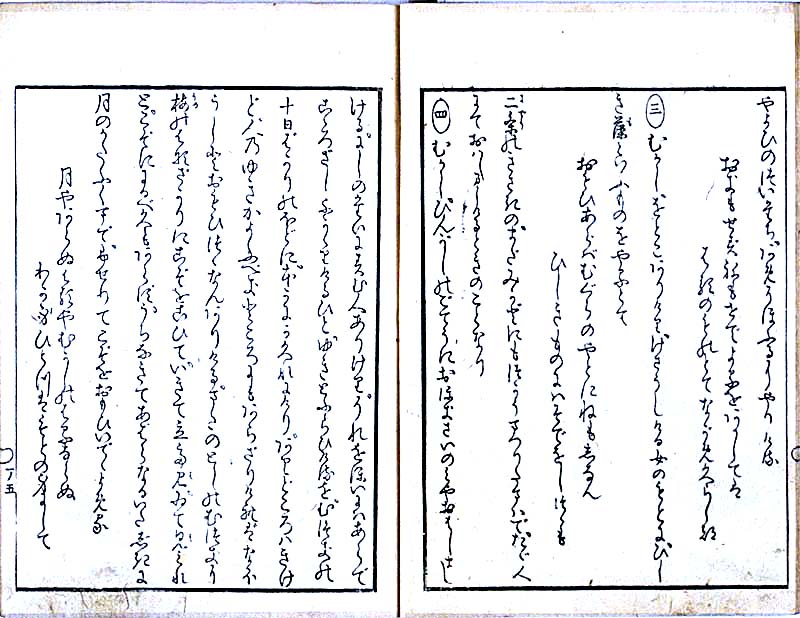 やよひのついたちあめそほふるにやりける
おきもせずねもせでよるをあかしては
はるのものとてながめくらしつ
三 むかしをとこありけりけさうしける女のもとにひじ
き藻といふものをやるとて
おもひあらばむぐらのやどにねもしなん
ひじきものにはそでをしつゝも
二条のきさきのまだみかどにもつかうまつりたまはでたゞ人
にておはしましけるときのことなり
四 むかしひんがしの五でうにおほきさいの宮おはしまし
けるにしのたいにすむ人ありけりそれをほいにはあらで
こゝろざしふかゝりけるひとゆきとぶらひけるをむ月の
十日ばかりのほどにほかにかくれにけりありどころはきけ
ど人のゆきかよふべきところにもあらざりければなほ
うしとおもひつゝなんありけるまたのとしのむ月に
梅の花ざかりにこぞをこひていきて立て見ゐて見見れ
どこぞににるべくもあらずうちなきてあばらなるいたじきに
月のかたふくまでふせりてこぞをおもひいでゝよめる
月やあらぬはるやむかしのはるならぬ
わが身ひとつはもとの身にして
丁五